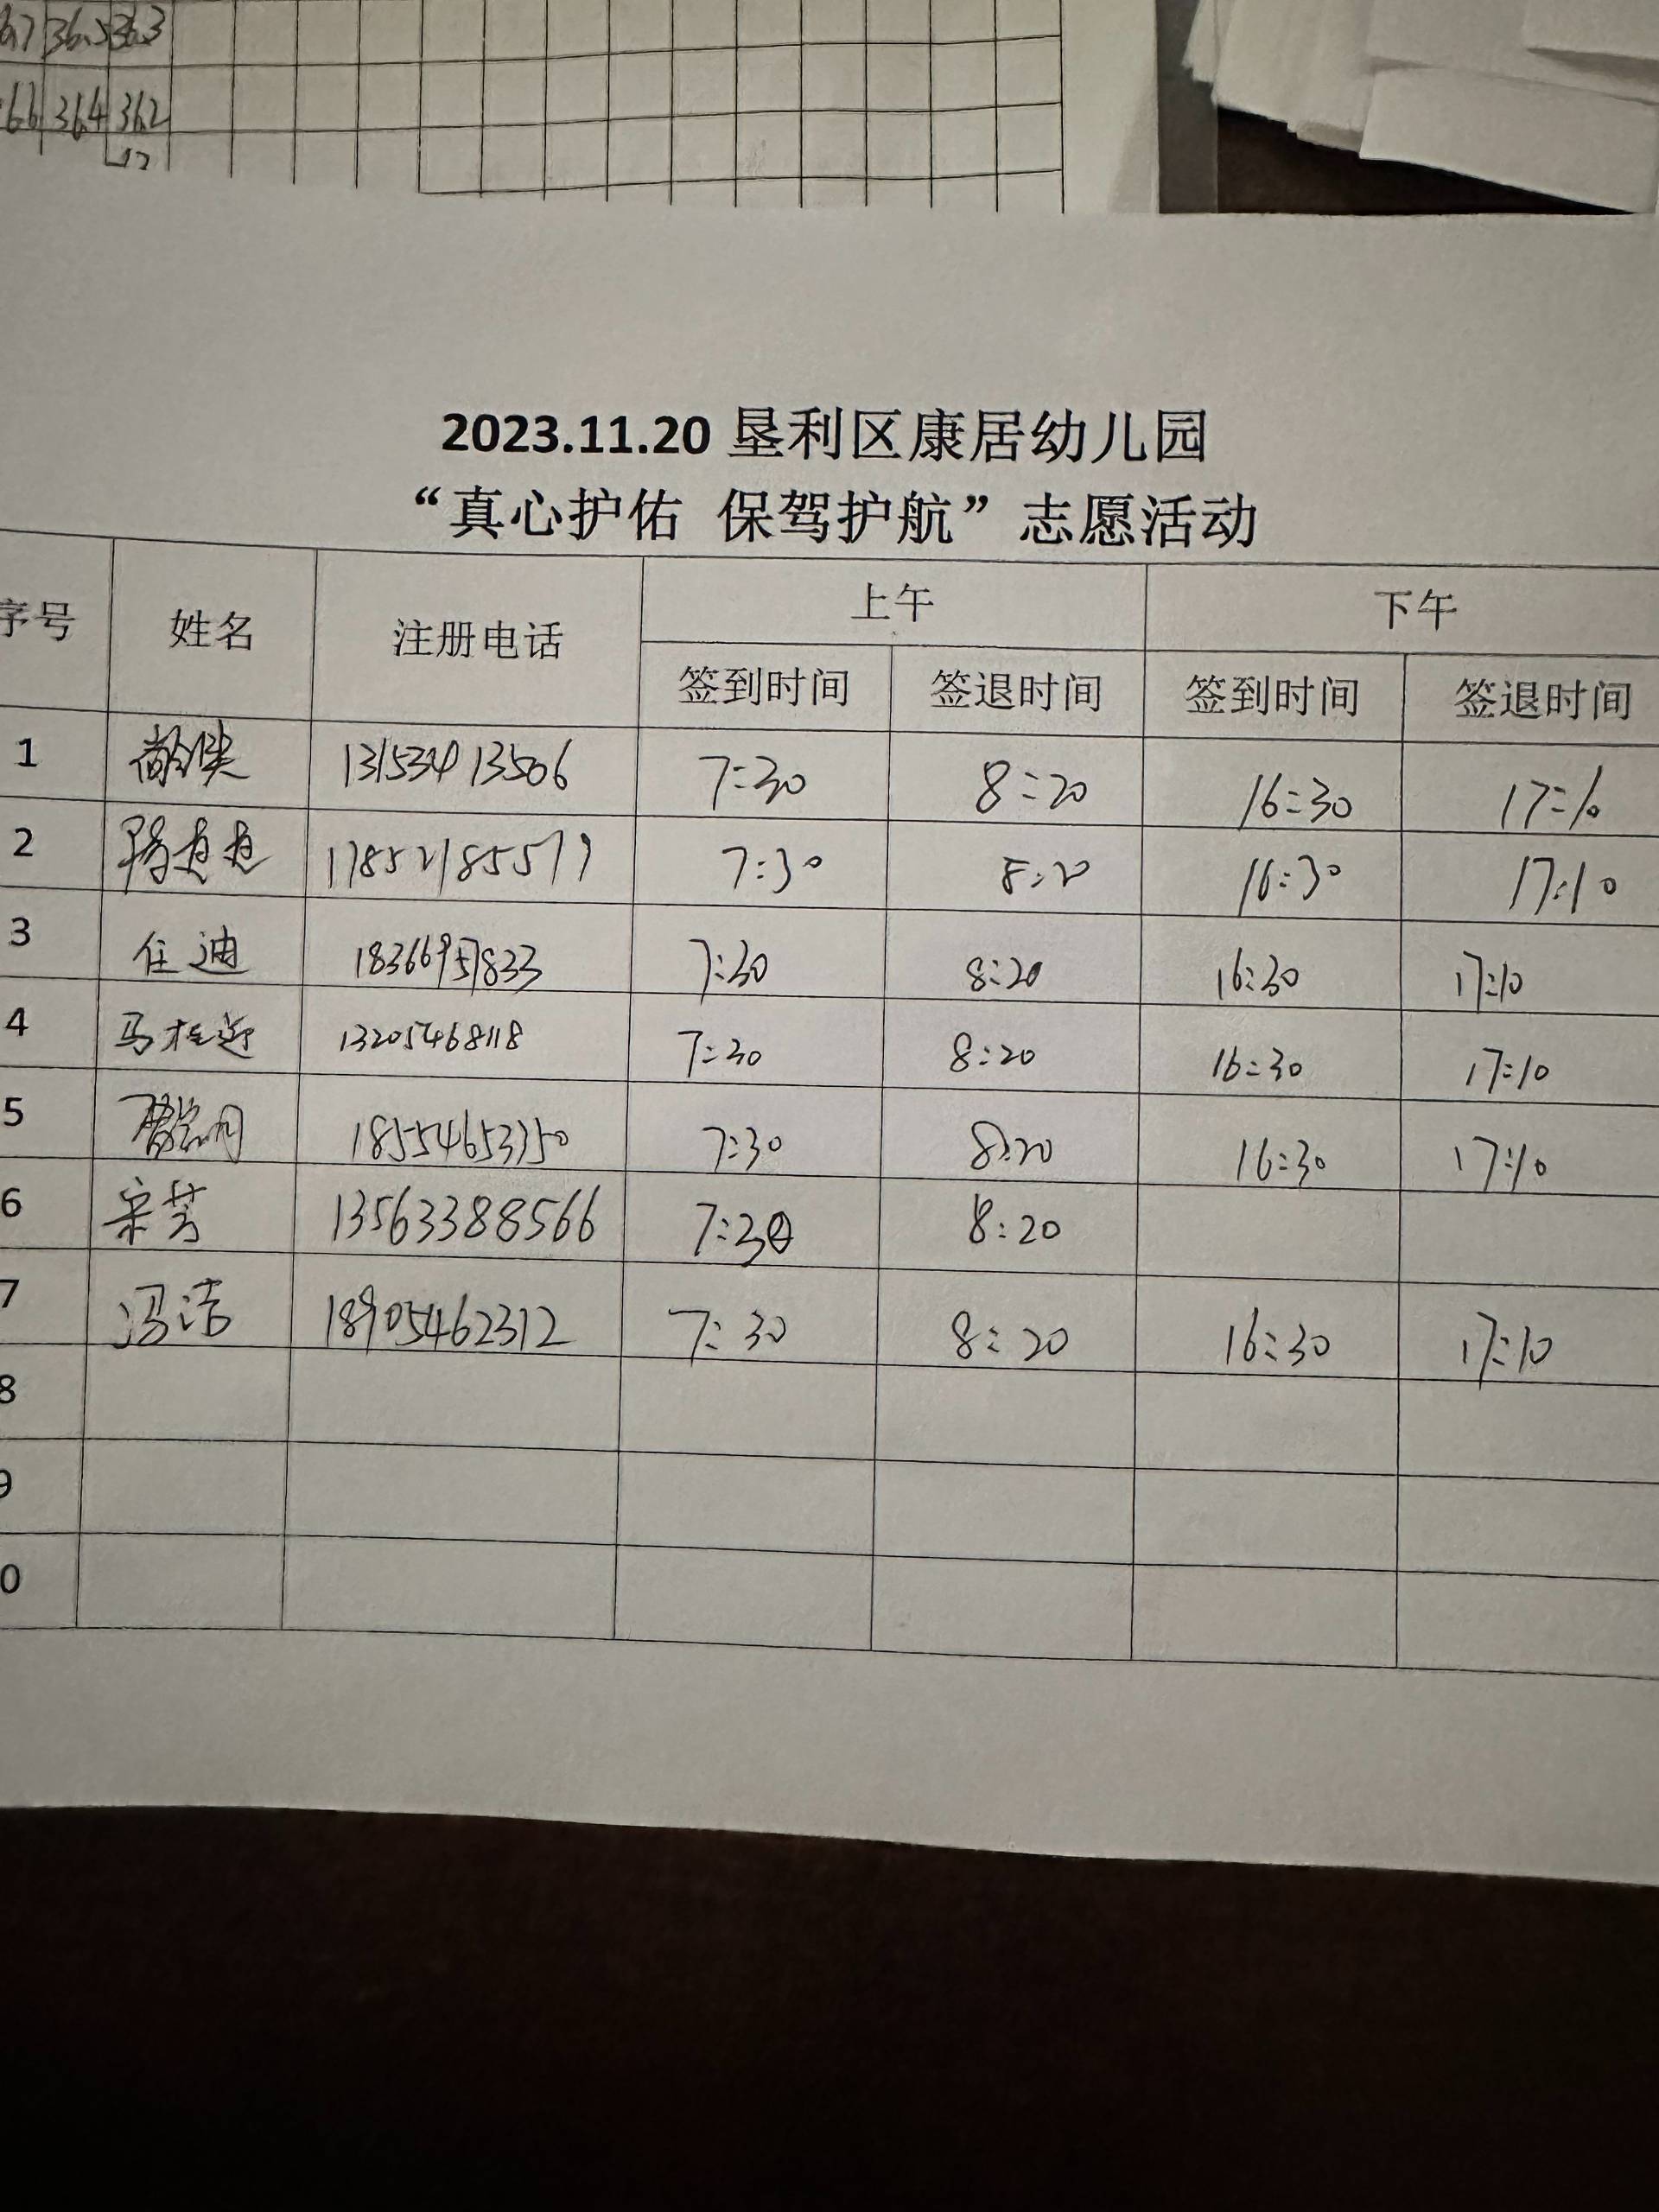 36.5 36.3
36.4 36.2
2023.11.20 垦利区康居幼儿园
“真心护佑 保驾护航”志愿活动
序号 姓名 注册电话 上午 下午
签到时间 签退时间 签到时间 签退时间
1 13153413506 7:30 8:20 16:30 17:10
2 17852185577 7:30 8:20 16:30 17:10
3 任迪 18366957833 7:30 8:20 16:30 17:10
4 13205468118 7:30 8:20 16:30 17:10
5 7:30 8:20 16:30 17:10
6 宋芳 13563388566 7:30 8:20
7 冯洁 18905462312 7:30 8:20 16:30 17:10
8
9
0